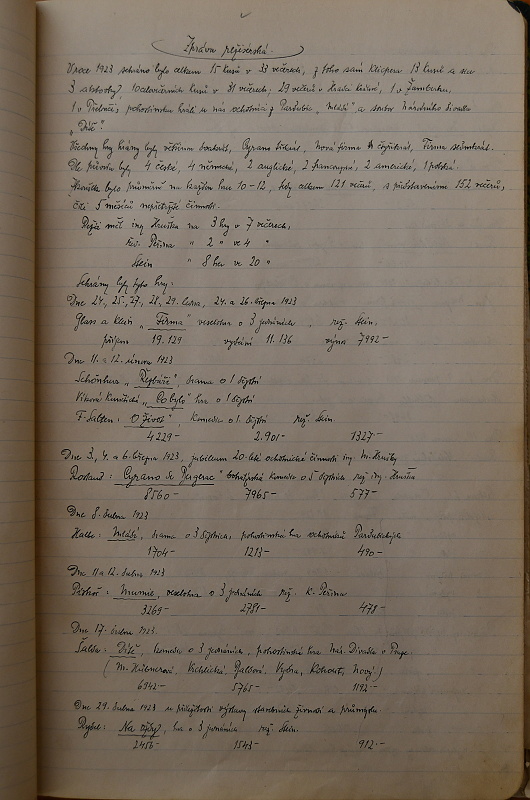 Zpráva režisérská.
V roce 1923 sehráno bylo celkem 15 kusů v 33 večerech, z toho sám Klicpera 13 kusů a sice
3 aktovky, 10 celovečerních kusů v 31 večerech; 29 večerů v Hradci Králové, 1 v Žamberku,
1 v Třebechovicích, pohostinsku hráli u nás ochotníci z Pardubic „Mládí“ a soubor Národního divadla
„Dítě“.
Všechny hry hrány byly většinou dvakrát, Cyrano třikrát, Nová firma čtyřikrát, Firma sedmkrát.
Dle původu byly 4 české, 4 německé, 2 anglické, 2 francouzské, 2 americké, 1 polská.
Zkoušek bylo průměrně na každou hru 10–12, tedy celkem 121 večerů, s představeními 152 večerů,
čili 5 měsíců nepřetržité činnosti.
Režii měl ing Hruška na 3 hry v 7 večerech,
Peřina " 2 " ve 4 "
Stein " 8 her ve 20 "
Sehrány byly tyto hry:
Dne 24., 25., 27., 28., 29. ledna, 24. a 26. března 1923
Glass a Klein „Firma“ veselohra o 3 jednáních, rež. Stein.
příjem 19.129 vydání 11.136 výnos 7992–
Dne 11. a 12. února 1923
Schönherr „Řezbáři“, drama o 1 dějství
Viková Kunětická „Co bylo“ hra o 1 dějství
F. Salten: „O život“, komedie o 1 dějství rež. Stein
4229– 2.901– 1327–
Dne 3., 4. a 6. března 1923, jubileum 20-leté ochotnické činnosti ing. M. Hrušky
Rostand: „Cyrano de Bergerac“ komedie o 5 dějstvích rež ing. Hruška
8560– 7965– 577–
Dne 8. dubna 1923
Halbe: Mládí, drama o 3 dějstvích, pohostinská hra ochotníků Pardubických
1704– 1213– 490–
Dne 11 a 12. dubna 1923
Mumie, veselohra o 3 jednáních rež. K. Peřina
3269– 2781– 478–
Dne 17. 1923.
Šalda: Dítě, komedie o 3 jednáních, pohostinská hra Nár. Divadla v Praze
(M. Hübnerová, Vrchlická, Baldová, Vydra, Kohout, Nový.)
6942– 5765– 1192–
Dne 29. dubna 1923 u příležitosti výstavy stavebních živností a průmyslu
Na výžky, hra o 3 jednáních rež. Stein.
2456– 1543– 912–